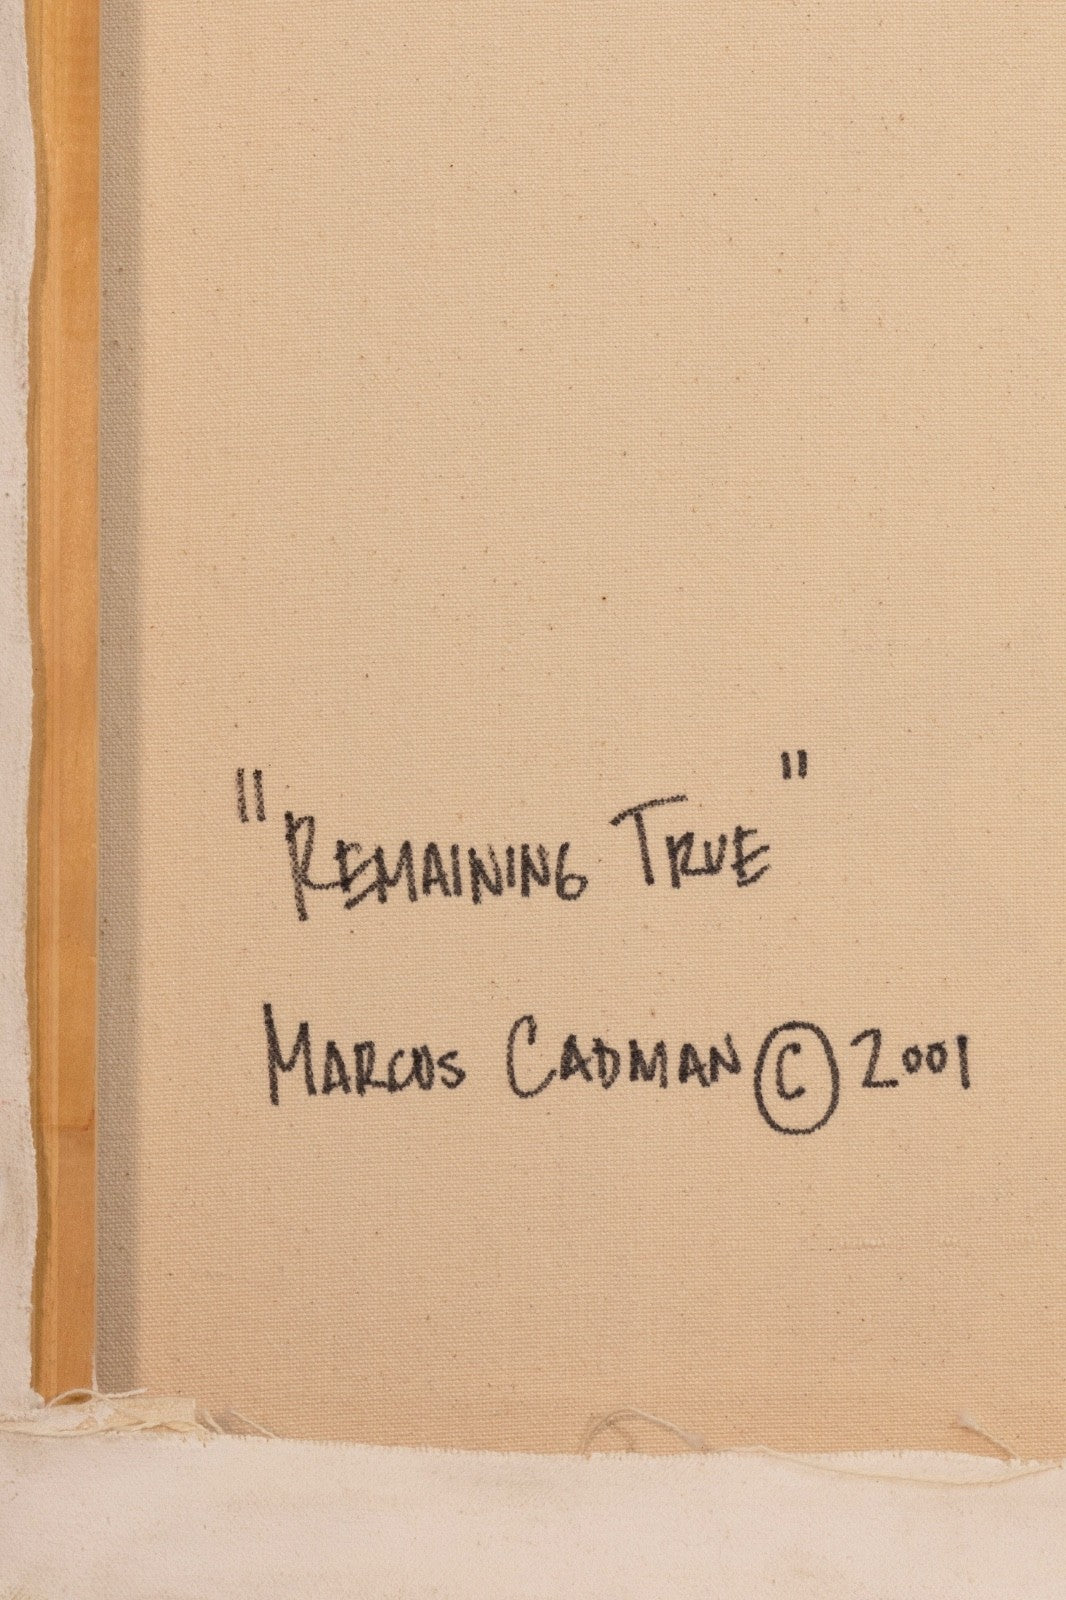 "REMAINING TRUE"
MARCUS CADMAN © 2001